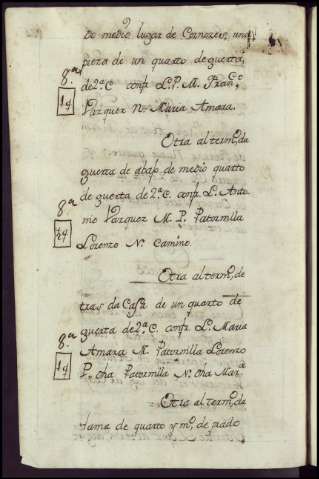 do medio, lugar de Cornozes, una
pieza de un quarto de guerta,
8.ª
1q
de 2.ª C. confr. L. P. M. Fran.co
Vazquez N. Maria Amara.
Otra al term.o da
guerta de abajo, de medio quarto
8.ª
½q
de guerta de 2.ª C. confr. L. Anto
nio Vazquez M. P. Patornilla
Lorenzo N. Camino.
Otra al term.o de
tras da Casa de un quarto de
8.ª
1q
guerta de 2.ª C. confr. L. Maria
Amara M. Patornilla Lorenzo
P. dha Patornilla N. dha Mar.a
Otra al term.o de
lama de quarto y m.o de prado